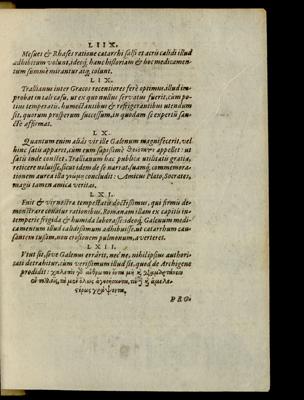 LIIX.
Mesues & Rhases ratione catarrhi salsi et acris calidi illud
adhibitum volunt, ideoq́; hanc historiam & hoc medicamen-
tum summè mirantur atq; colunt.
LIX.
Trallianus inter Græcos recentiores ferè optimus, illud im-
probat in tali casu, ut ex quo nullus servatus fuerit, cùm po-
tius temperatis, humectantibus & refrigerantibus utendum
sit, quorum prosperum successum, in quodam se expertũ san-
ctè affirmat.
LX.
Quantum enim aliàs vir ille Galenum magnifecerit, vel
hinc satis apparet, cùm eum sæpissimè appellet: ut
satis inde constet, Trallianum hac publica utilitatis gratia,
reticere noluisse, sicut idem de se narrat, suamq́; commemora-
tionem aurea illa concludit: Amicus Plato, Socrates,
magis tamen amica veritas.
LXI.
Fuit & vir nostra tempestate doctissimus, qui firmis de-
monstrare conatur rationibus, Romanam illam ex capitis in-
temperie frigida & humida laborasse: ideoq́; Galenum medi-
camentum illud calidissimum adhibuisse, ut catarrhum cau-
santem tussim, non erosionem pulmonum, averteret.
LXII.
Vt ut sit, sive Galenus errarit, nec ne, nihil ipsius authori-
tati detrahitur, cùm verissimum illud sit, quod de Archigene
prodidit:
PRO-